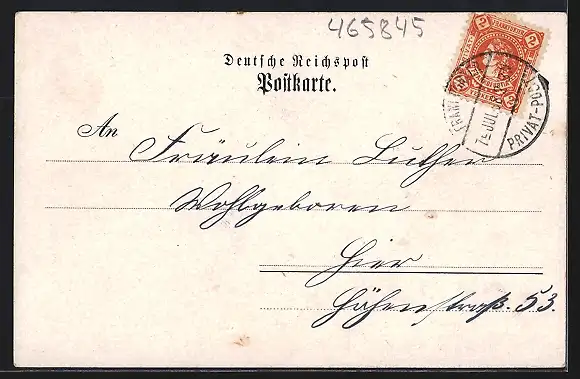 465845
Deutsche Reichspost
Postkarte.
2 FRANKFURT 2
PRIVAT-POST
7 JUL
An Fräulein Luther
Wohlgeboren
Hier
Höhenstraß. 53.